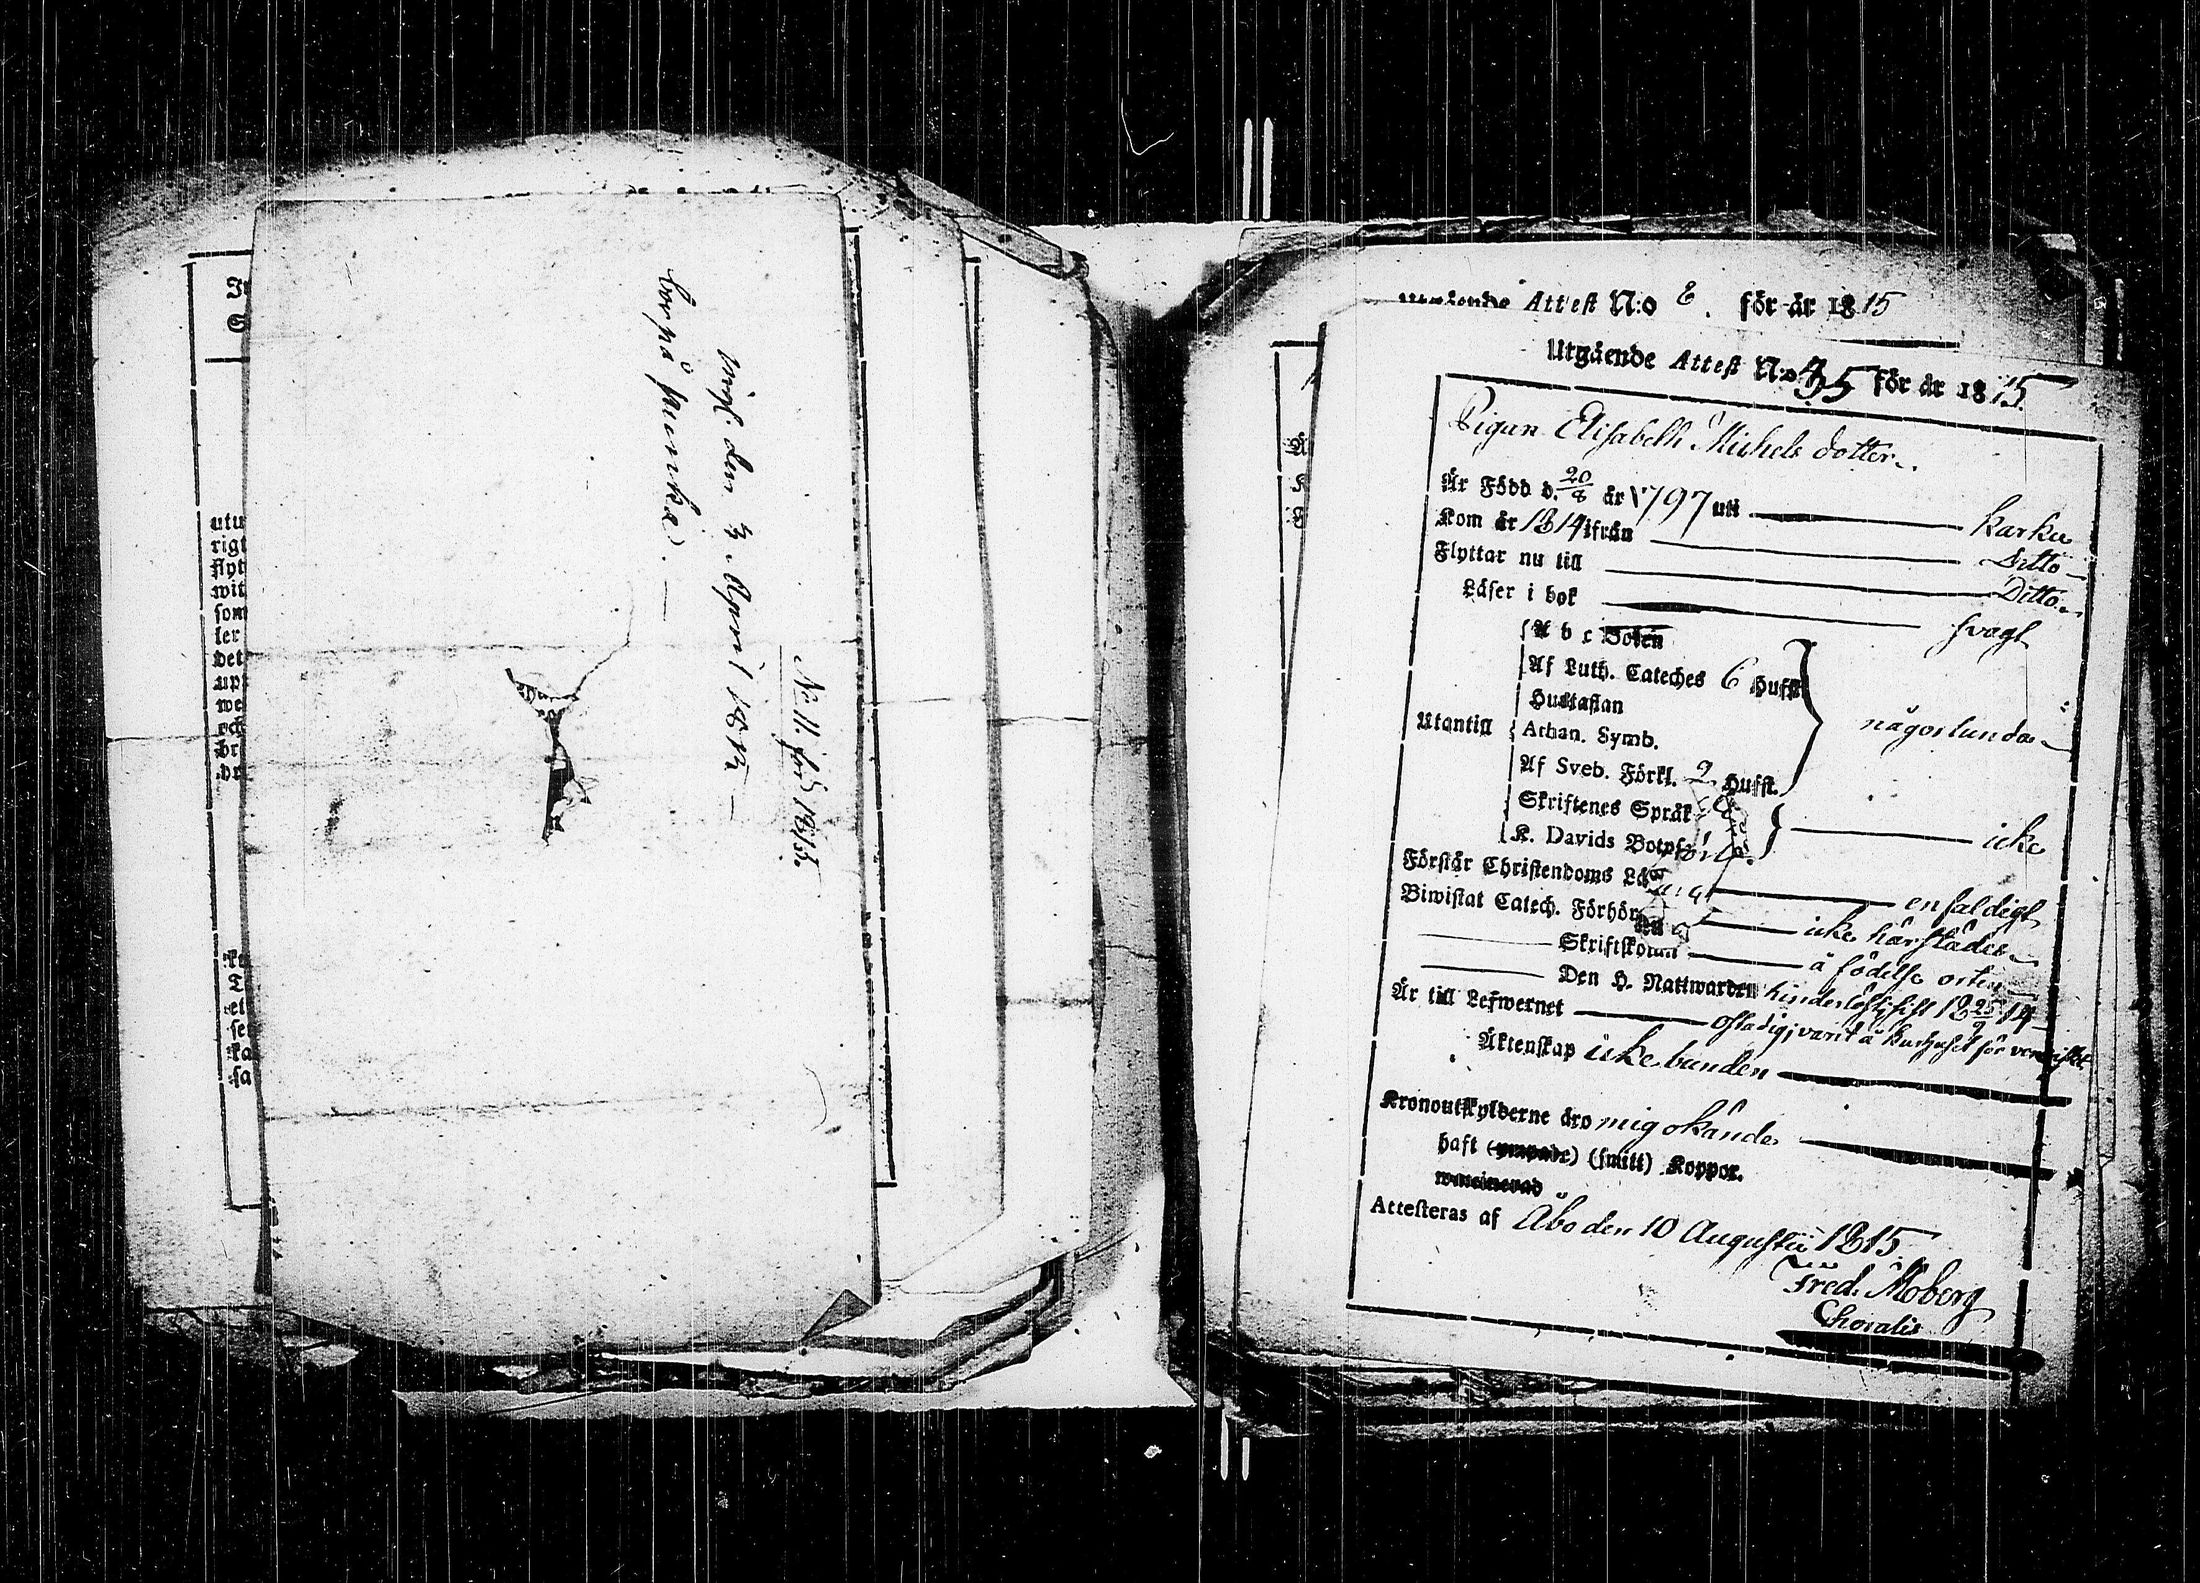 bor på
den April 18
No 11. för 1815.
utu
rigt
flyt
wit
som
ler
det
upp
we
och
br
Attest N:o 8. för år 1815
Utgående Attest N:o 35 för år 1815.
Pigan Elisabeth Michels dotter
Är Född d. 20/8 år 1797 uti Karku
Kom år 1814 ifrån Ditto
Flyttar nu till Ditto
Läser i bok svagt
Utantill
A b c Boken
Af Luth. Cateches 6 Hufst.
Hustaflan
Athan. Symb.
Af Sveb. Förkl. 2 Hufst.
någorlunda
Skriftenes Språk
K. Davids Botps
icke
Förstår Christendoms Lä enfaldigt
Biwistat Catech. Förhör icke härstädes
Skriftskom å födelse orten
Den H. Nattwarden 18 25/9 14
Är till Lefwernet ostadig, varit å Kurhuset för
Äktenskap icke bunden
Kronoutskylderne äro mig okände
haft (ympade) (smitt) Koppor.
waccinerad
Attesteras af Åbo den 10 Augusti 1815
Fred. Moberg
Choralis